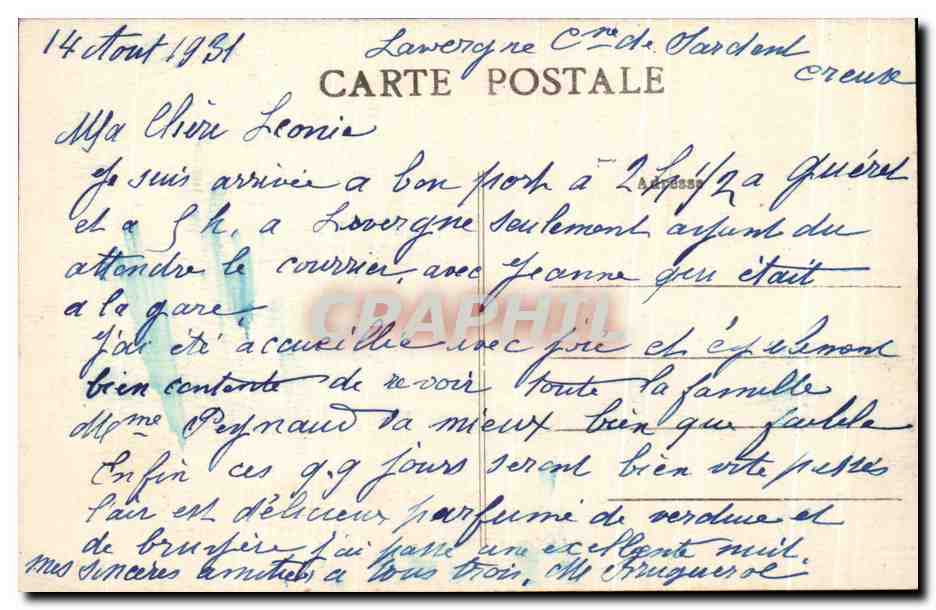 14 Aout 1931 Lavergne Cne de Sardent
Creuse
CARTE POSTALE
Ma Chère Leonie
Adresse
Je suis arrivée a bon port à 2h 1/2 a Guéret
et a 5 h. a Lavergne seulement ayant du
attendre le courrier, avec Jeanne qui était
a la gare.
CRAPHIL
J'ai été accueillie avec joie et également
bien contente de revoir toute la famille
Mme Peynaud va mieux bien que faible
Enfin ces q.q jours seront bien vite passés
l'air est délicieux parfumé de verdure et
de bruyère j'ai passé une excellente nuit.
mes sincères amitiés a tous trois.